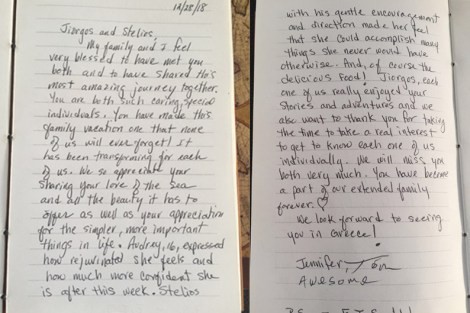 12/28/18
Jiorgos and Stelios,
My family and I feel
very blessed to have met you
both and to have shared this
most amazing journey together.
You are both such caring, special
individuals. You have made this
family vacation one that none
of us will ever forget! It
has been transforming for each
of us. We so appreciate your
sharing your love of the sea
and all the beauty it has to
offer as well as your appreciation
for the simpler, more important
things in life. Audrey, 16, expressed
how rejuvinated she feels and
how much more confident she
is after this week. Stelios
with his gentle encouragement
and direction made her feel
that she could accomplish many
things she never would have
otherwise. And, of course the
delicious food! Jiorgos, each
one of us really enjoyed your
stories and adventures and we
also want to thank you for taking
the time to take a real interest
to get to know each one of us
individually. We will miss you
both very much. You have become
a part of our extended family
forever. ♡
We look forward to seeing
you in Greece!
Jennifer,
Awesome